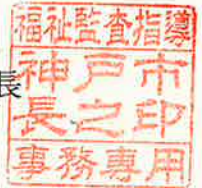 長
福祉監査指導
神戸市
長之印
事務専用